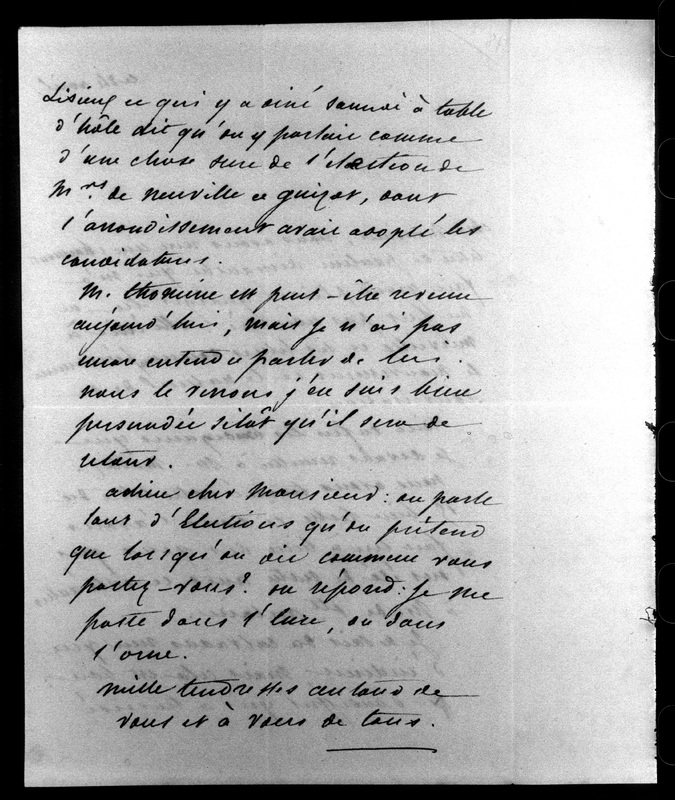 Lisieux et qui y a diné samedi à table
d'hôte dit qu'on y parlait comme
d'une chose sure de l'élection de
Mrs. de neuville et guizot, dont
l'arrondissement avait adopté les
candidatures.
M. thomine est peut-être revenu
aujourd'hui, mais je n'ai pas
encore entendu parler de lui.
nous le verrons j'en suis bien
persuadée sitôt qu'il sera de
retour.
adieu cher Monsieur: on parle
tant d'Elections qu'on prétend
que lorsqu'on dit comment vous
portez-vous? on répond: je me
porte dans l'Eure, ou dans
l'orne.
mille tendresses autour de
vous et à vous de tous.